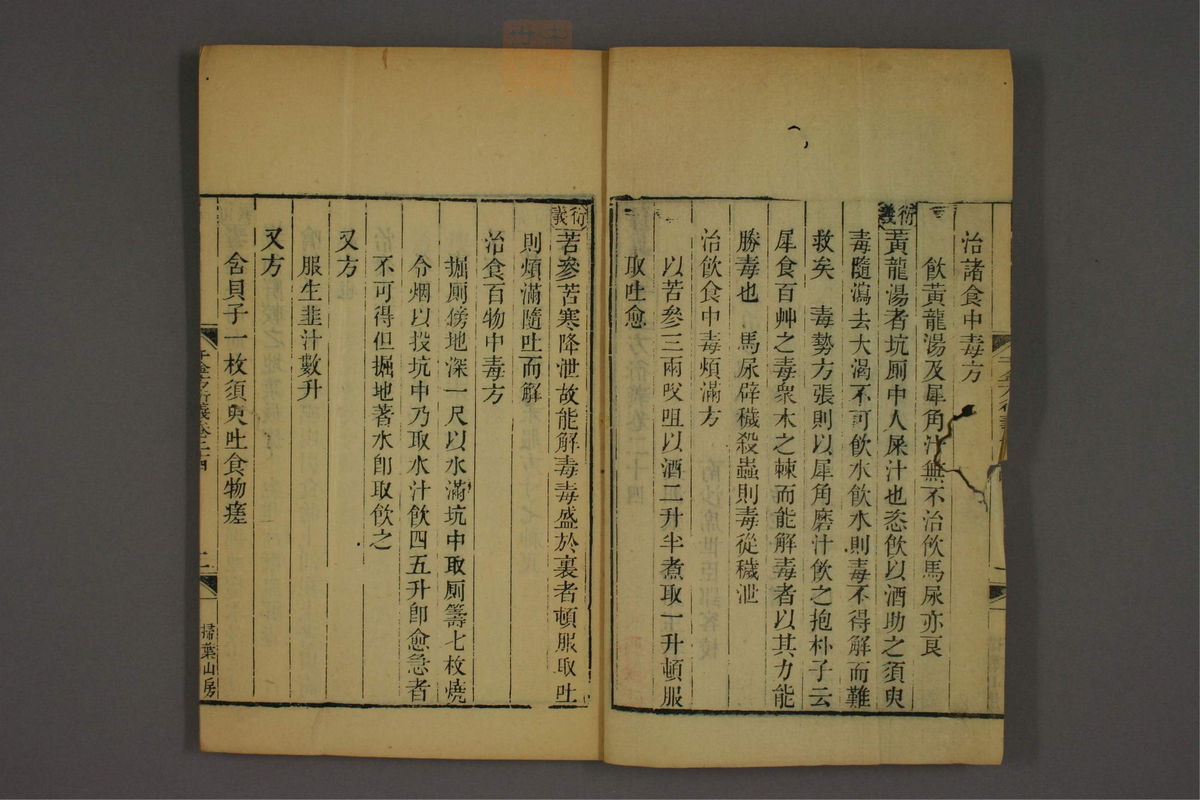 治諸食中毒方
飲黃龍湯及犀角汁無不治飲馬尿亦良
衍義黃龍湯者坑厠中人屎汁也恣飲以酒助之須臾
毒隨瀉去大渴不可飲水飲水則毒不得解而難
救矣　毒勢方張則以犀角磨汁飲之抱朴子云
犀食百艸之毒衆木之棘而能解毒者以其力能
勝毒也　馬尿辟穢殺蟲則毒從穢泄
治飲食中毒煩滿方
以苦參三兩㕮咀以酒二升半煮取一升頓服
取吐愈
衍義苦參苦寒降泄故能解毒毒盛於裏者頓服取吐
則煩滿隨吐而解
治食百物中毒方
掘厠傍地深一尺以水滿坑中取厠籌七枚燒
令烟以投坑中乃取水汁飲四五升卽愈急者
不可得但掘地著水卽取飲之
又方
服生韭汁數升
又方
含貝子一枚須臾吐食物瘥
千金方衍義卷二十四
二
掃葉山房